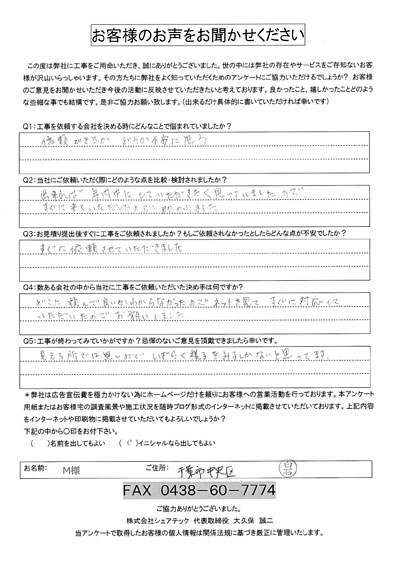 お客様のお声をお聞かせください
この度は弊社に工事をご用命いただき、誠にありがとうございました。世の中には弊社の存在やサービスをご存知ないお客
様が沢山いらっしゃいます。その方たちに弊社をよく知っていただくためのアンケートにご協力いただけるでしょうか? お客様
のご意見をお聞かせいただき今後の活動に反映させていただきたいと考えております。良かったこと、嬉しかったことどのよう
な些細な事でも結構です。是非ご協力お願い致します。(出来るだけ具体的に書いていただければ幸いです)
Q1:工事を依頼する会社を決める時にどんなことで悩まれていましたか?
信頼ができるか どうか不安に思う
Q2:当社にご依頼いただく際にどのような点を比較・検討されましたか?
出来れば 年内中に していただきたく思っていましたので
すぐに来ていただいたので 助かりました
Q3:お見積り提出後すぐに工事をご依頼されましたか?もしご依頼されなかったとしたらどんな点が不安でしたか?
すぐに依頼させていただきました
Q4:数ある会社の中から当社に工事をご依頼いただいた決め手は何ですか?
どこに頼んで良いかわからなかったので ネットを見て すぐに対応して
いただいたので お願いしました
Q5:工事が終わってみていかがですか?忌憚のないご意見を頂戴できましたら幸いです。
見える所では無いので しばらく様子をみるしかないと思ってます
*弊社は広告宣伝費を極力かけない為にホームページだけを頼りにお客様への営業活動を行っております。本アンケート
用紙またはお客様宅の調査風景や施工状況を随時ブログ形式のインターネットに掲載させていただいております。上記内容
をインターネットや印刷物に掲載させていただいてもよろしいでしょうか?
下記の中から〇印をお付下さい。
( )名前を出してもよい (○)イニシャルなら出してもよい
お名前: M様 ご住所: 千葉市中央区
FAX 0438-60-7774
ご協力ありがとうございました。
株式会社シェアテック 代表取締役 大久保 誠二
当アンケートで取得したお客様の個人情報は関係法規に基づき厳正に管理いたします。